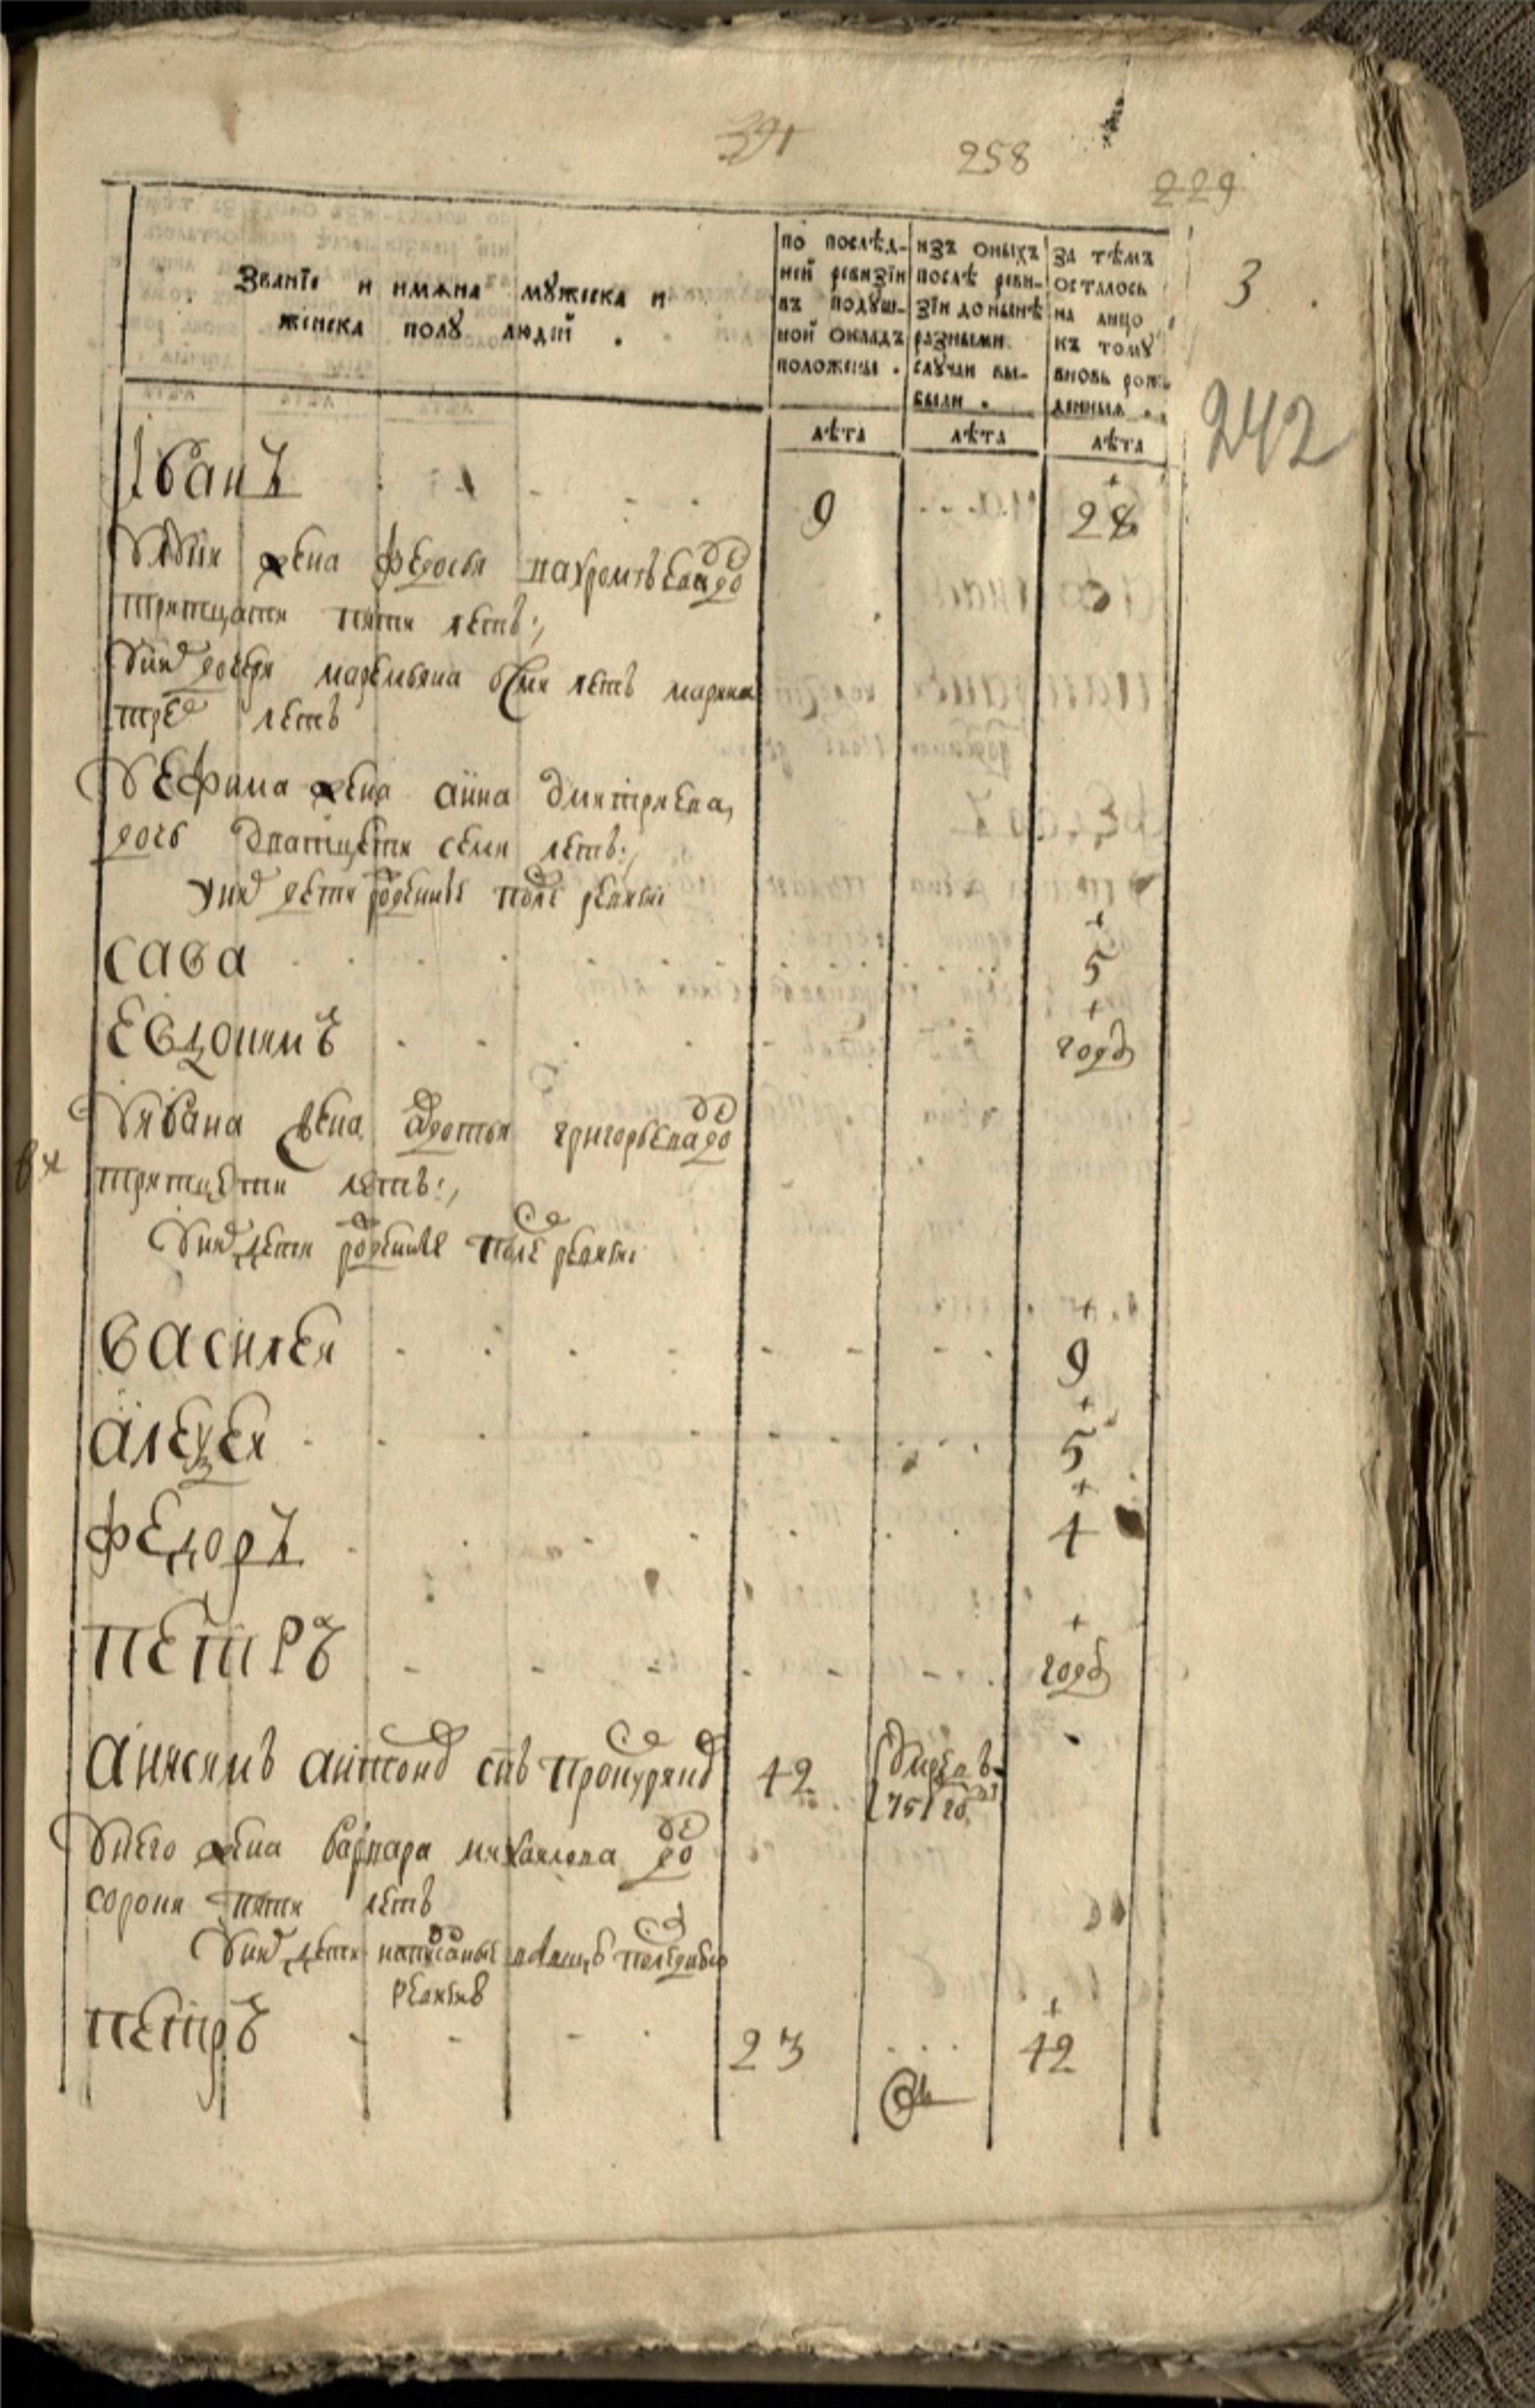 391 258 229
3
242
Званїе и имѧна мꙋжеска и
женска полꙋ людей .
по послѣд-
ней ревизїи
въ подꙋш-
ной окладъ
положены .
изъ оныхъ
послѣ реви-
зїи до нынѣ
разными
слꙋчаи вы-
были .
за тѣмъ
осталось
на лицо
къ томꙋ
вновь рож-
денныѧ .
лѣта лѣта лѣта
Іванъ 9 28
жена федосья до
тритцати пяти летъ
дочери осми летъ марина
трех летъ
Уефима жена анна дмитриева
дочь дватцети семи летъ
уних дети рожденные после ревизиї
сава 5
Евдокимъ годъ
Уивана жена григорьева до
тритцети летъ
Уних дети рожденные после ревизиї
василеи 9
алеѯеи 5
федоръ 4
петръ годъ
анисимъ антонов снъ 42 умре в
1751 го
Унего жена варвара михаилова до
сорока пяти летъ
Уних дети написанные последнюю
ревизию
петръ 23 42